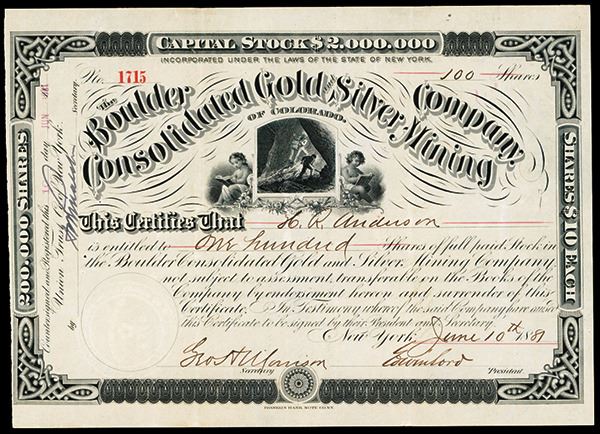 CAPITAL STOCK $2,000,000
INCORPORATED UNDER THE LAWS OF THE STATE OF NEW YORK.
No. 1715
100 Shares
The Boulder Consolidated Gold and Silver Mining Company,
OF COLORADO.
This Certifies That H. R. Anderson
is entitled to One hundred Shares of full paid Stock in
the Boulder Consolidated Gold and Silver Mining Company
not subject to assessment, transferable on the Books of the
Company by endorsement hereon and surrender of this
Certificate. In Testimony whereof the said Company have caused
this Certificate to be signed by their President and Secretary.
New York, June 10th 1881
Geo. H. Morrison
Secretary
President.
200,000 SHARES
SHARES $10 EACH
Countersigned and Registered this day
Union Trust Co. of New York.
by
Secretary
FRANKLIN BANK NOTE CO. N.Y.